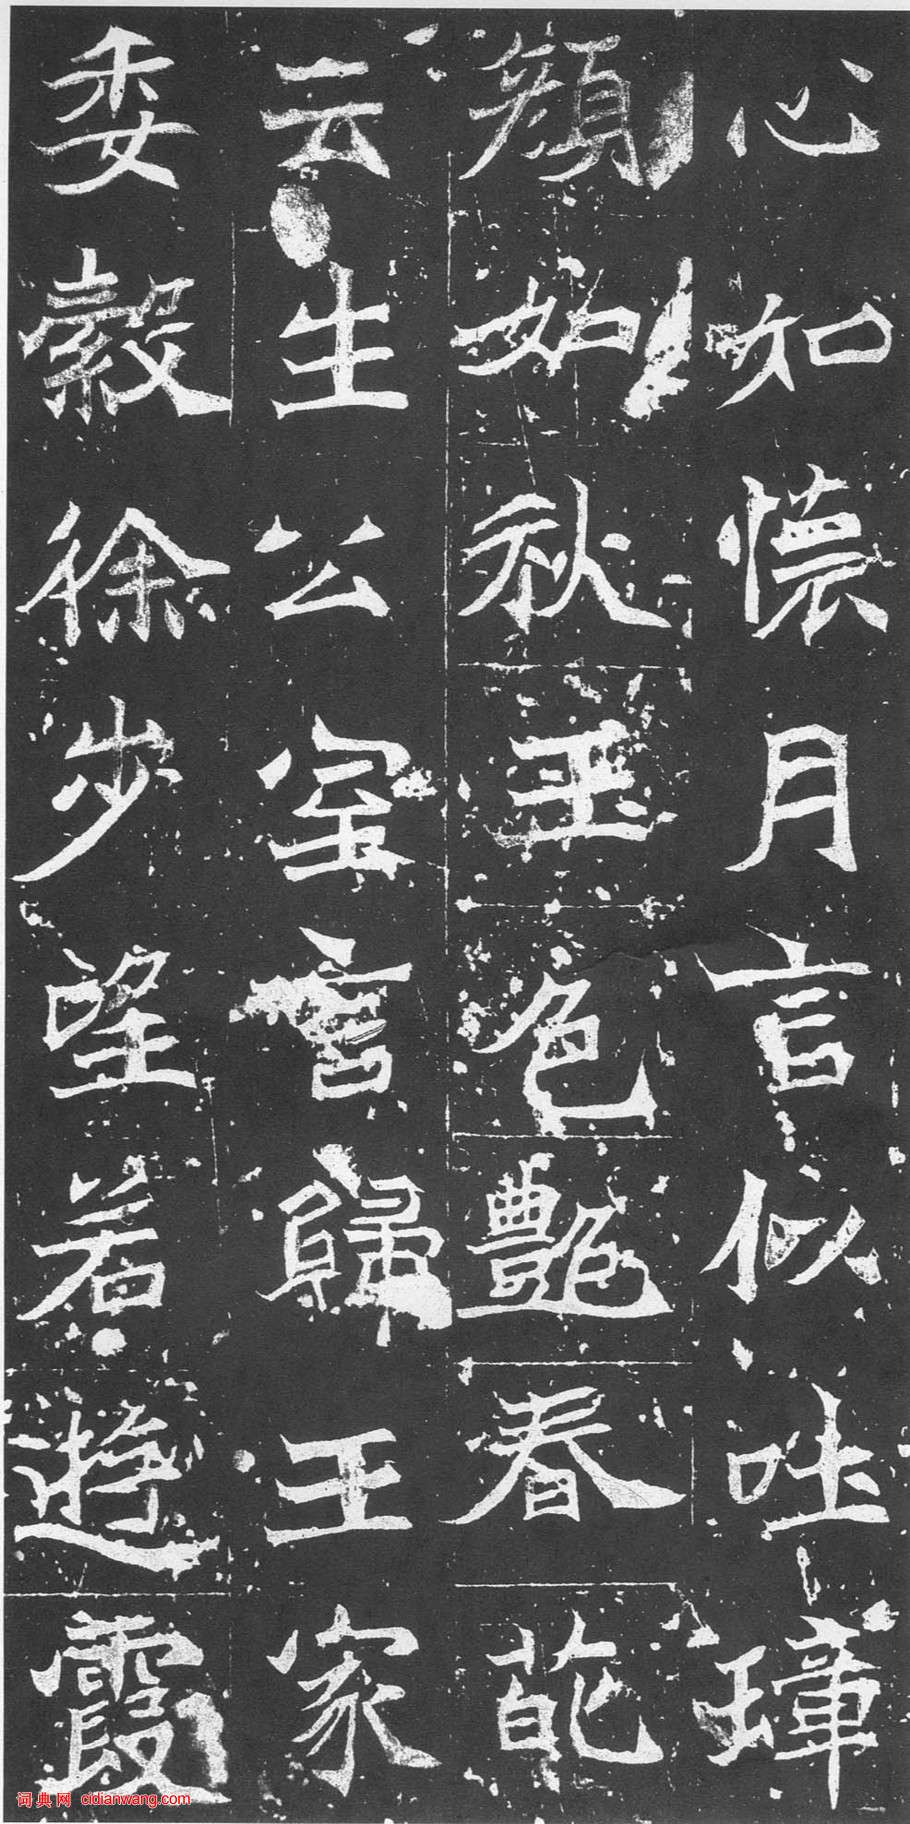 心如懷月言似吐璋
顏如秋玉色艷春葩
云生公室言歸王家
委縠徐步望若遊霞
词典网 cidianwang.com